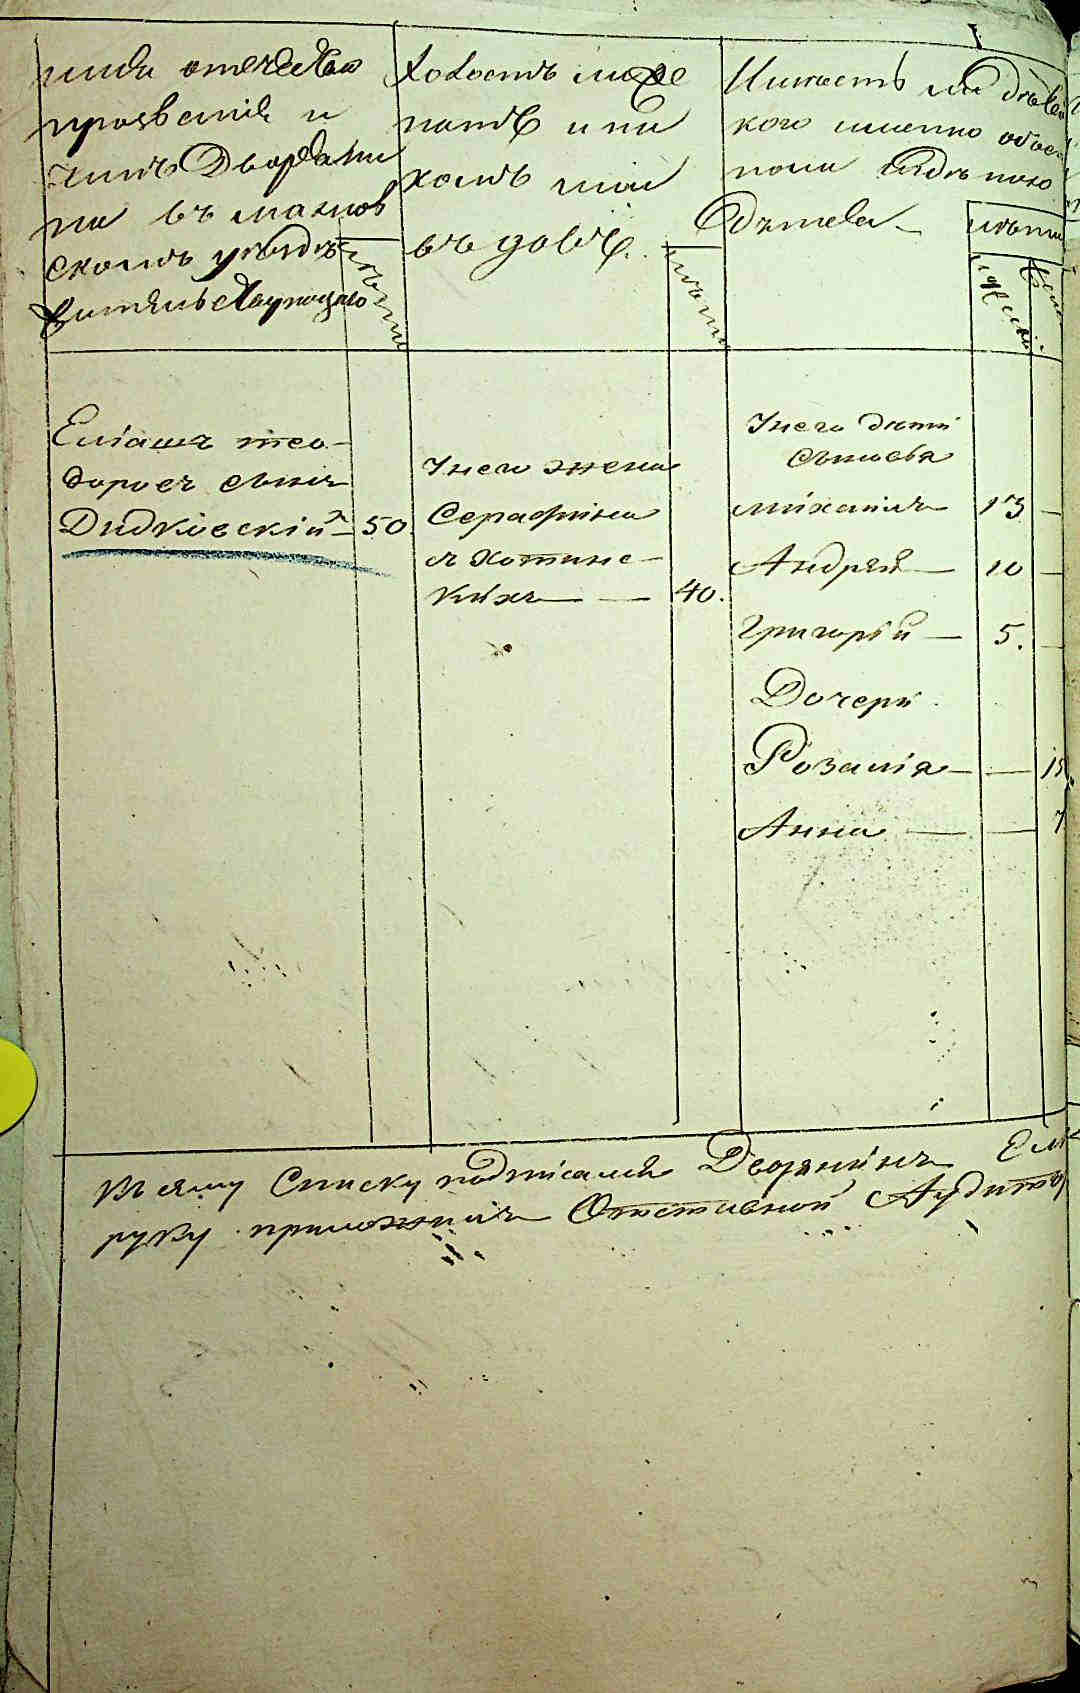 имя отчество
прозвание и
чинъ Дворяни
на въ
скомъ уѣздѣ
жительствующаго
лѣты
Холостъ или же
натъ и на
комъ или
въ довѣ.
лѣты
Имѣетъ ли дѣтей
кого именно обоего
пола
дѣтей
лѣты
Еліашъ тео-
доровъ сынъ
Дидковскій 50.
У него жена
Серафина
съ Хотинс-
кихъ 40.
У него дѣти
сыновья
Михаилъ 13
Андрей 10
Григорій 5.
Дочери
Розалія 15
Анна 7
Къ сему Списку подписался Дворянинъ
руку приложилъ Отставной Аудиторъ